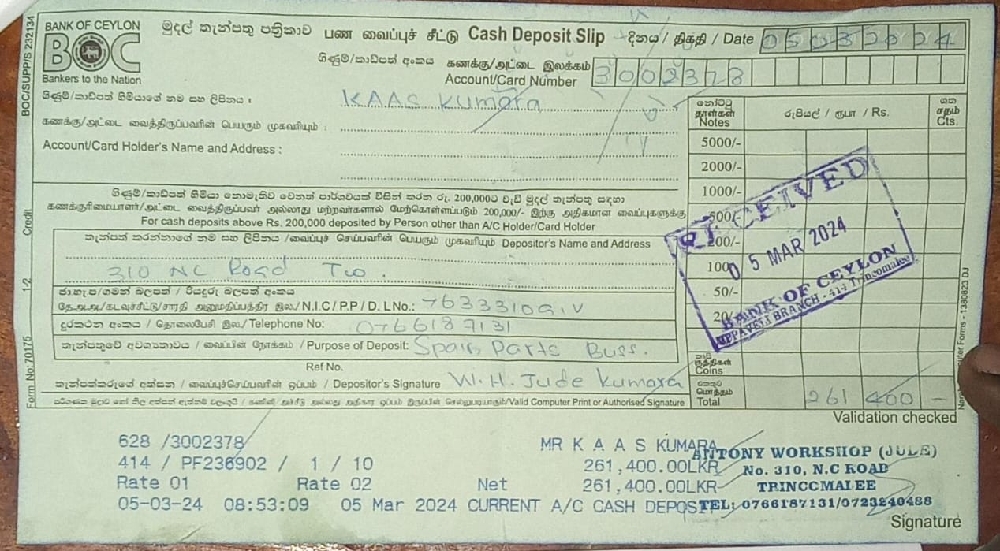 BOC/SUPP/S 232134
BANK OF CEYLON
BOC
Bankers to the Nation
මුදල් තැන්පතු පත්‍රිකාව பண வைப்புச் சீட்டு Cash Deposit Slip
දිනය / திகதி / Date 05032024
ගිණුම්/කාඩ්පත් අංකය கணக்கு/அட்டை இலக்கம்
Account/Card Number 3002378
ගිණුම්/කාඩ්පත් හිමියාගේ නම සහ ලිපිනය :
KAAS Kumara
கணக்கு/அட்டை வைத்திருப்பவரின் பெயரும் முகவரியும் :
Account/Card Holder's Name and Address :
නෝට්ටු
தாள்கள்
Notes
රුපියල් / ரூபா / Rs.
ශත
சதம்
Cts
5000/-
2000/-
1000/-
500/-
200/-
100/-
50/-
20/-
Coins
ගිණුම්/කාඩ්පත් හිමියා නොමැතිව වෙනත් පාර්ශවයක් විසින් කරන රු. 200,000ට වැඩි මුදල් තැන්පතු සඳහා
கணக்குரிமையாளர்/அட்டை வைத்திருப்பவர் அல்லாது மற்றவர்களால் மேற்கொள்ளப்படும் 200,000/- இற்கு அதிகமான வைப்புகளுக்கு
For cash deposits above Rs. 200,000 deposited by Person other than A/C Holder/Card Holder
තැන්පත් කරන්නාගේ නම සහ ලිපිනය /வைப்புச் செய்பவரின் பெயரும் முகவரியும் Depositor's Name and Address
310 NC Road Tco.
ජා.හැ.ප/ගමන් බලපත් / රියදුරු බලපත් අංකය
தே.அ.அ/கடவுச்சீட்டு/சாரதி அனுமதிப்பத்திர இல./N.I.C/P.P/D.L No.: 763331091V
දුරකථන අංකය / தொலைபேசி இல./Telephone No. 0766187131
තැන්පතුවේ අවශ්‍යතාවය / வைப்பின் நோக்கம் / Purpose of Deposit: Spair Parts Buss.
Ref No.
තැන්පත්කරුගේ අත්සන / வைப்புச்செய்பவரின் ஒப்பம் / Depositor's Signature W.H. Jude Kumara
/Valid Computer Print or Authorised Signature
එකතුව
மொத்தம்
Total 261 400 -
Form No. 70175
1-2
Credit
RECEIVED
05 MAR 2024
BANK OF CEYLON
Validation checked
628 /3002378 MR K A A S KUMARA
414 / PF236902 / 1 / 10 261,400.00LKR
Rate 01 Rate 02 Net 261,400.00LKR
05-03-24 08:53:09 05 Mar 2024 CURRENT A/C CASH DEPOSIT
ANTONY WORKSHOP (JUDE)
No. 310, N.C ROAD
TRINCOMALEE
TEL: 0766187131/0723240488
Signature